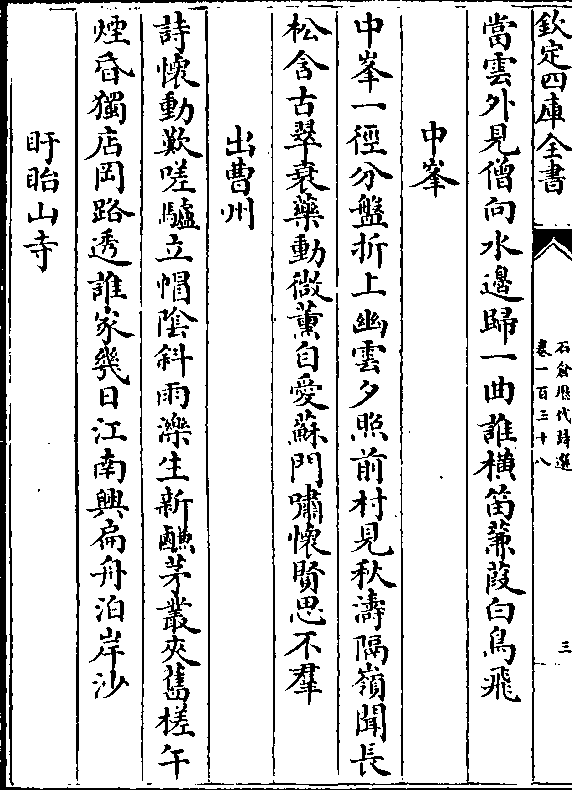 欽定四庫全書
石倉歷代詩選
卷一百三十八
三
當雲外見僧向水邊歸一曲誰横笛蒹葭白鳥飛
中峯
中峯一徑分盤折上幽雲夕照前村見秋濤隔嶺聞長
松含古翠衰藥動微薰自愛蘇門嘯懷賢思不羣
出曹州
詩懷動歎嗟驢立帽陰斜雨濼生新𪉸茅叢夾舊槎午
煙昏獨店岡路透誰家幾日江南興扁舟泊岸沙
盱眙山寺